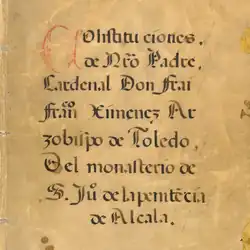 Constituciones.
de Nr̃o Padre,
Cardenal Don Frai
Frãº Ximenez Ar
zobispo de Toledo,
Del monasterio de
S. Juº de la penitẽcia
de Alcala.